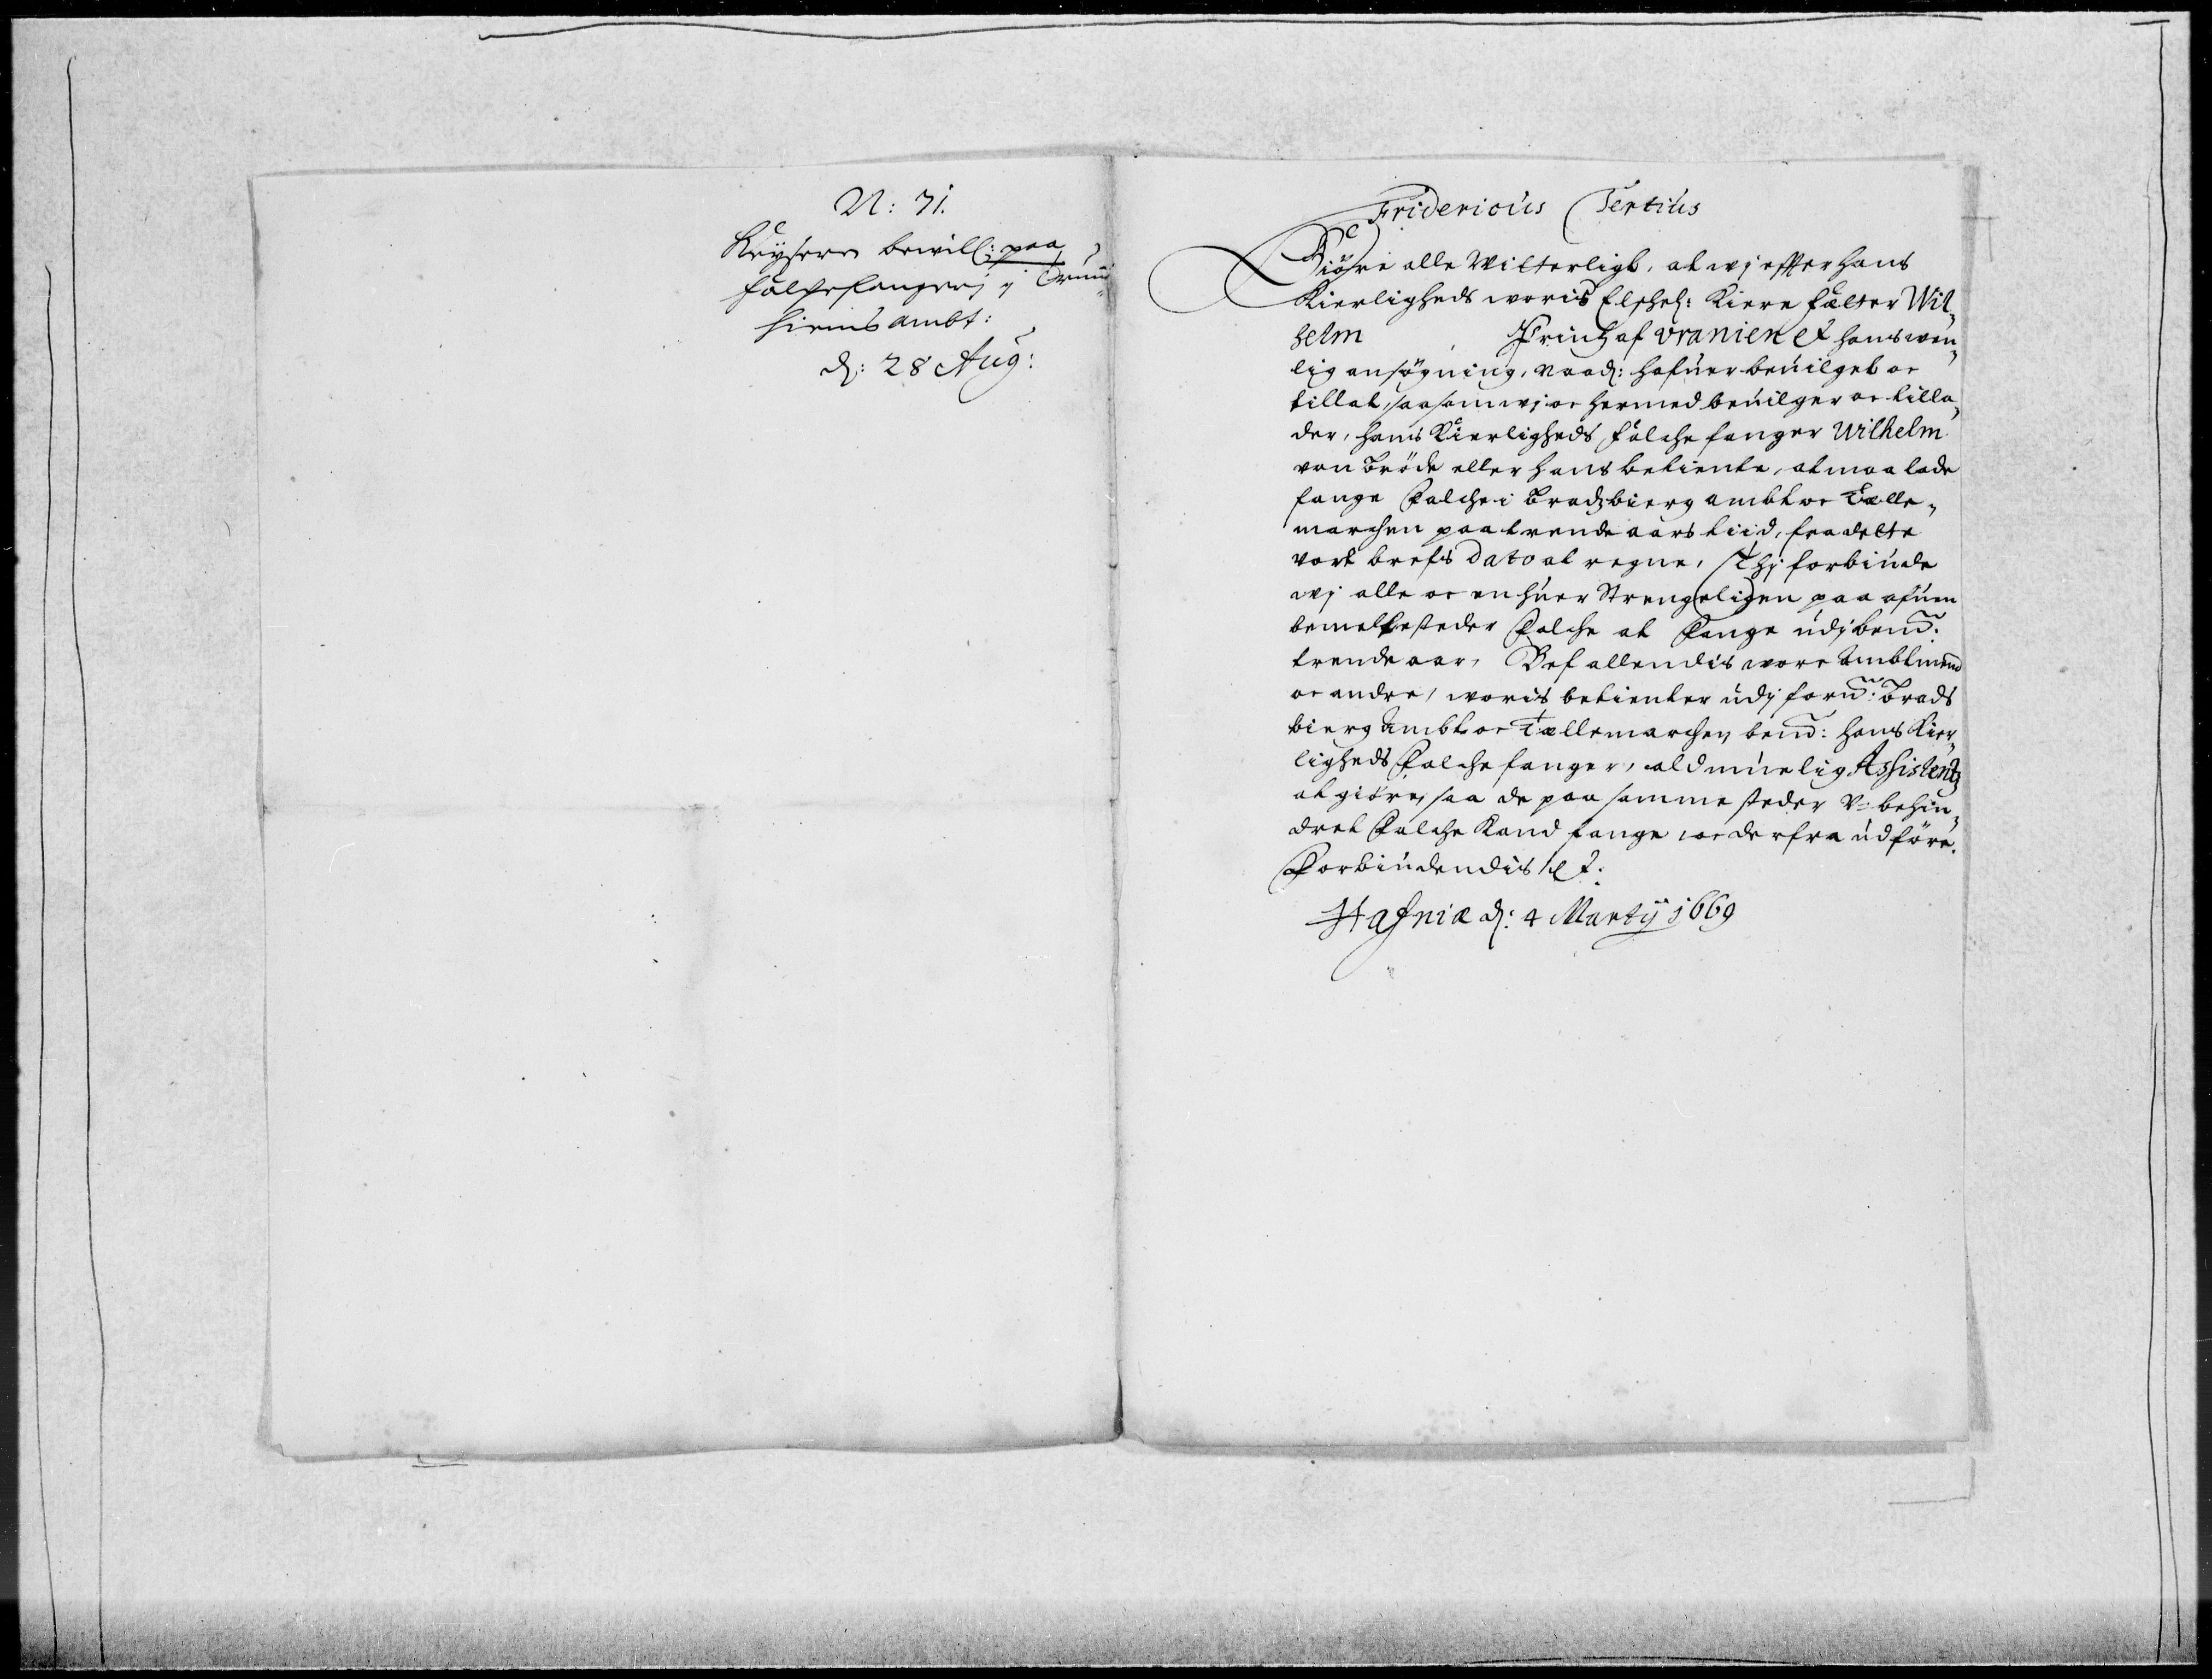 N: 71.
Keysern bevill: paa
falkefangerj i Trun¬
hiems ambt:
d: 28 Aug:
Fridericus Tertius
Giöre alle Witterligt, at wj effter hans
Kierligheds woris Elskel: Kiere fætter Wil¬
helm Printz af Uranien etc hans wen¬
lig ansøgning, naad: hafuer beuilget oc
tillat, saasom wj oc hermed beuilger oc tilla¬
der, hans Kierligheds falche fanger Wilhelm
von Bröde eller hans betiente, at maa lade
fange falche i Bradzbierg ambt oc Tælle¬
marchen paa trende aars tiid, fra dette
vort brefs dato at regne, Thj forbiude
wj alle oc en huer Strengeligen paa ofuen
bemelte steder falche at fange udj bemt:
trende aar, Befallendis wore Ambtmend
oc andre, woris betienter udj fornt: Brads
bierg Ambt oc Tællemarchen bemt: hans Kier¬
ligheds falche fanger, ald muelig Assistentz
at giöre, saa de paa samme steder V-behin¬
dret falche Kand fange oc derfra udföre.
Forbiudendis etc.
Hafniæ d: 4 Martij 1669